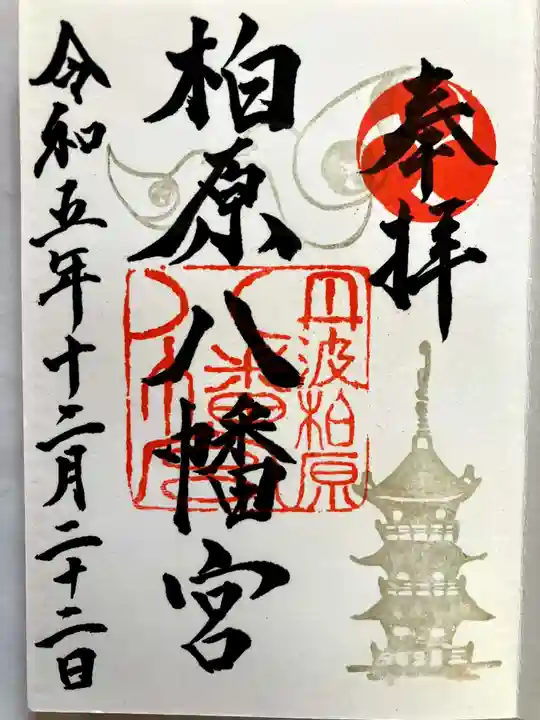 奉拝
丹波柏原
柏原八幡宮
令和五年十二月二十二日